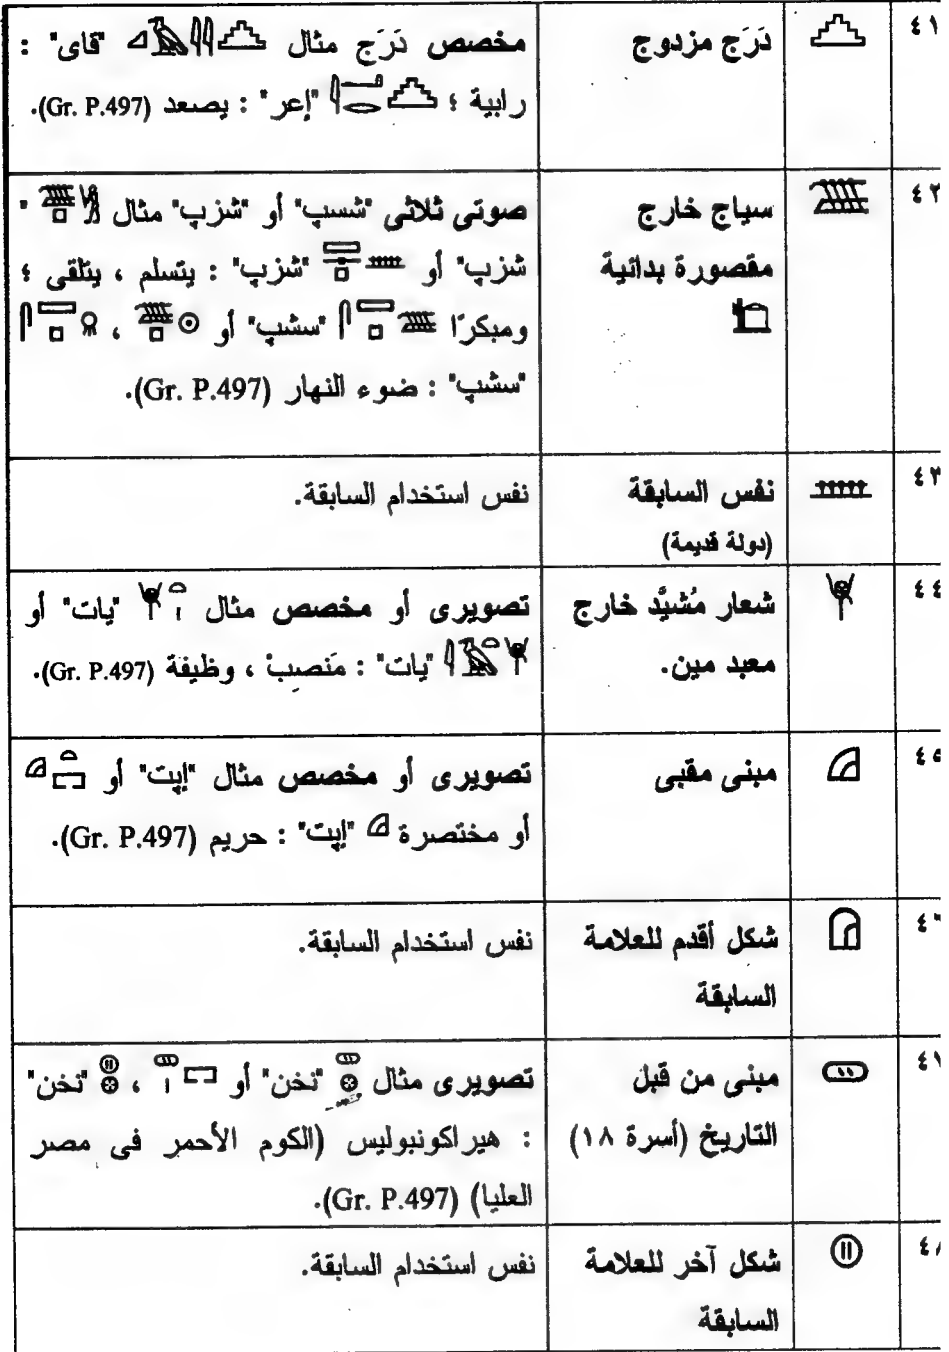 ٤١
دَرَج مزدوج
مخصص دَرَج مثال "قاى" :
رابية ؛ "إعر" : يصعد (Gr. P.497).
٤٢
سياج خارج
مقصورة بدائية
صوتى ثلاثى "شسپ" أو "شزپ" مثال "
شزپ" أو "شزپ" : يتسلم ، يتلقى ؛
ومبكرًا "سشپ" أو ،
"سشپ" : ضوء النهار (Gr. P.497).
٤٣
نفس السابقة
(دولة قديمة)
نفس استخدام السابقة.
٤٤
شعار مُشيَّد خارج
معبد مين.
تصويرى أو مخصص مثال "يات" أو
"يات" : مَنصِب ، وظيفة (Gr. P.497).
٤٥
مبنى مقبى
تصويرى أو مخصص مثال "إپت" أو
أو مختصرة "إپت" : حريم (Gr. P.497).
شكل أقدم للعلامة
السابقة
نفس استخدام السابقة.
مبنى من قبل
التاريخ (أسرة ١٨)
تصويرى مثال "نخن" أو ، "نخن"
: هيراكونبوليس (الكوم الأحمر فى مصر
العليا) (Gr. P.497).
شكل آخر للعلامة
السابقة
نفس استخدام السابقة.